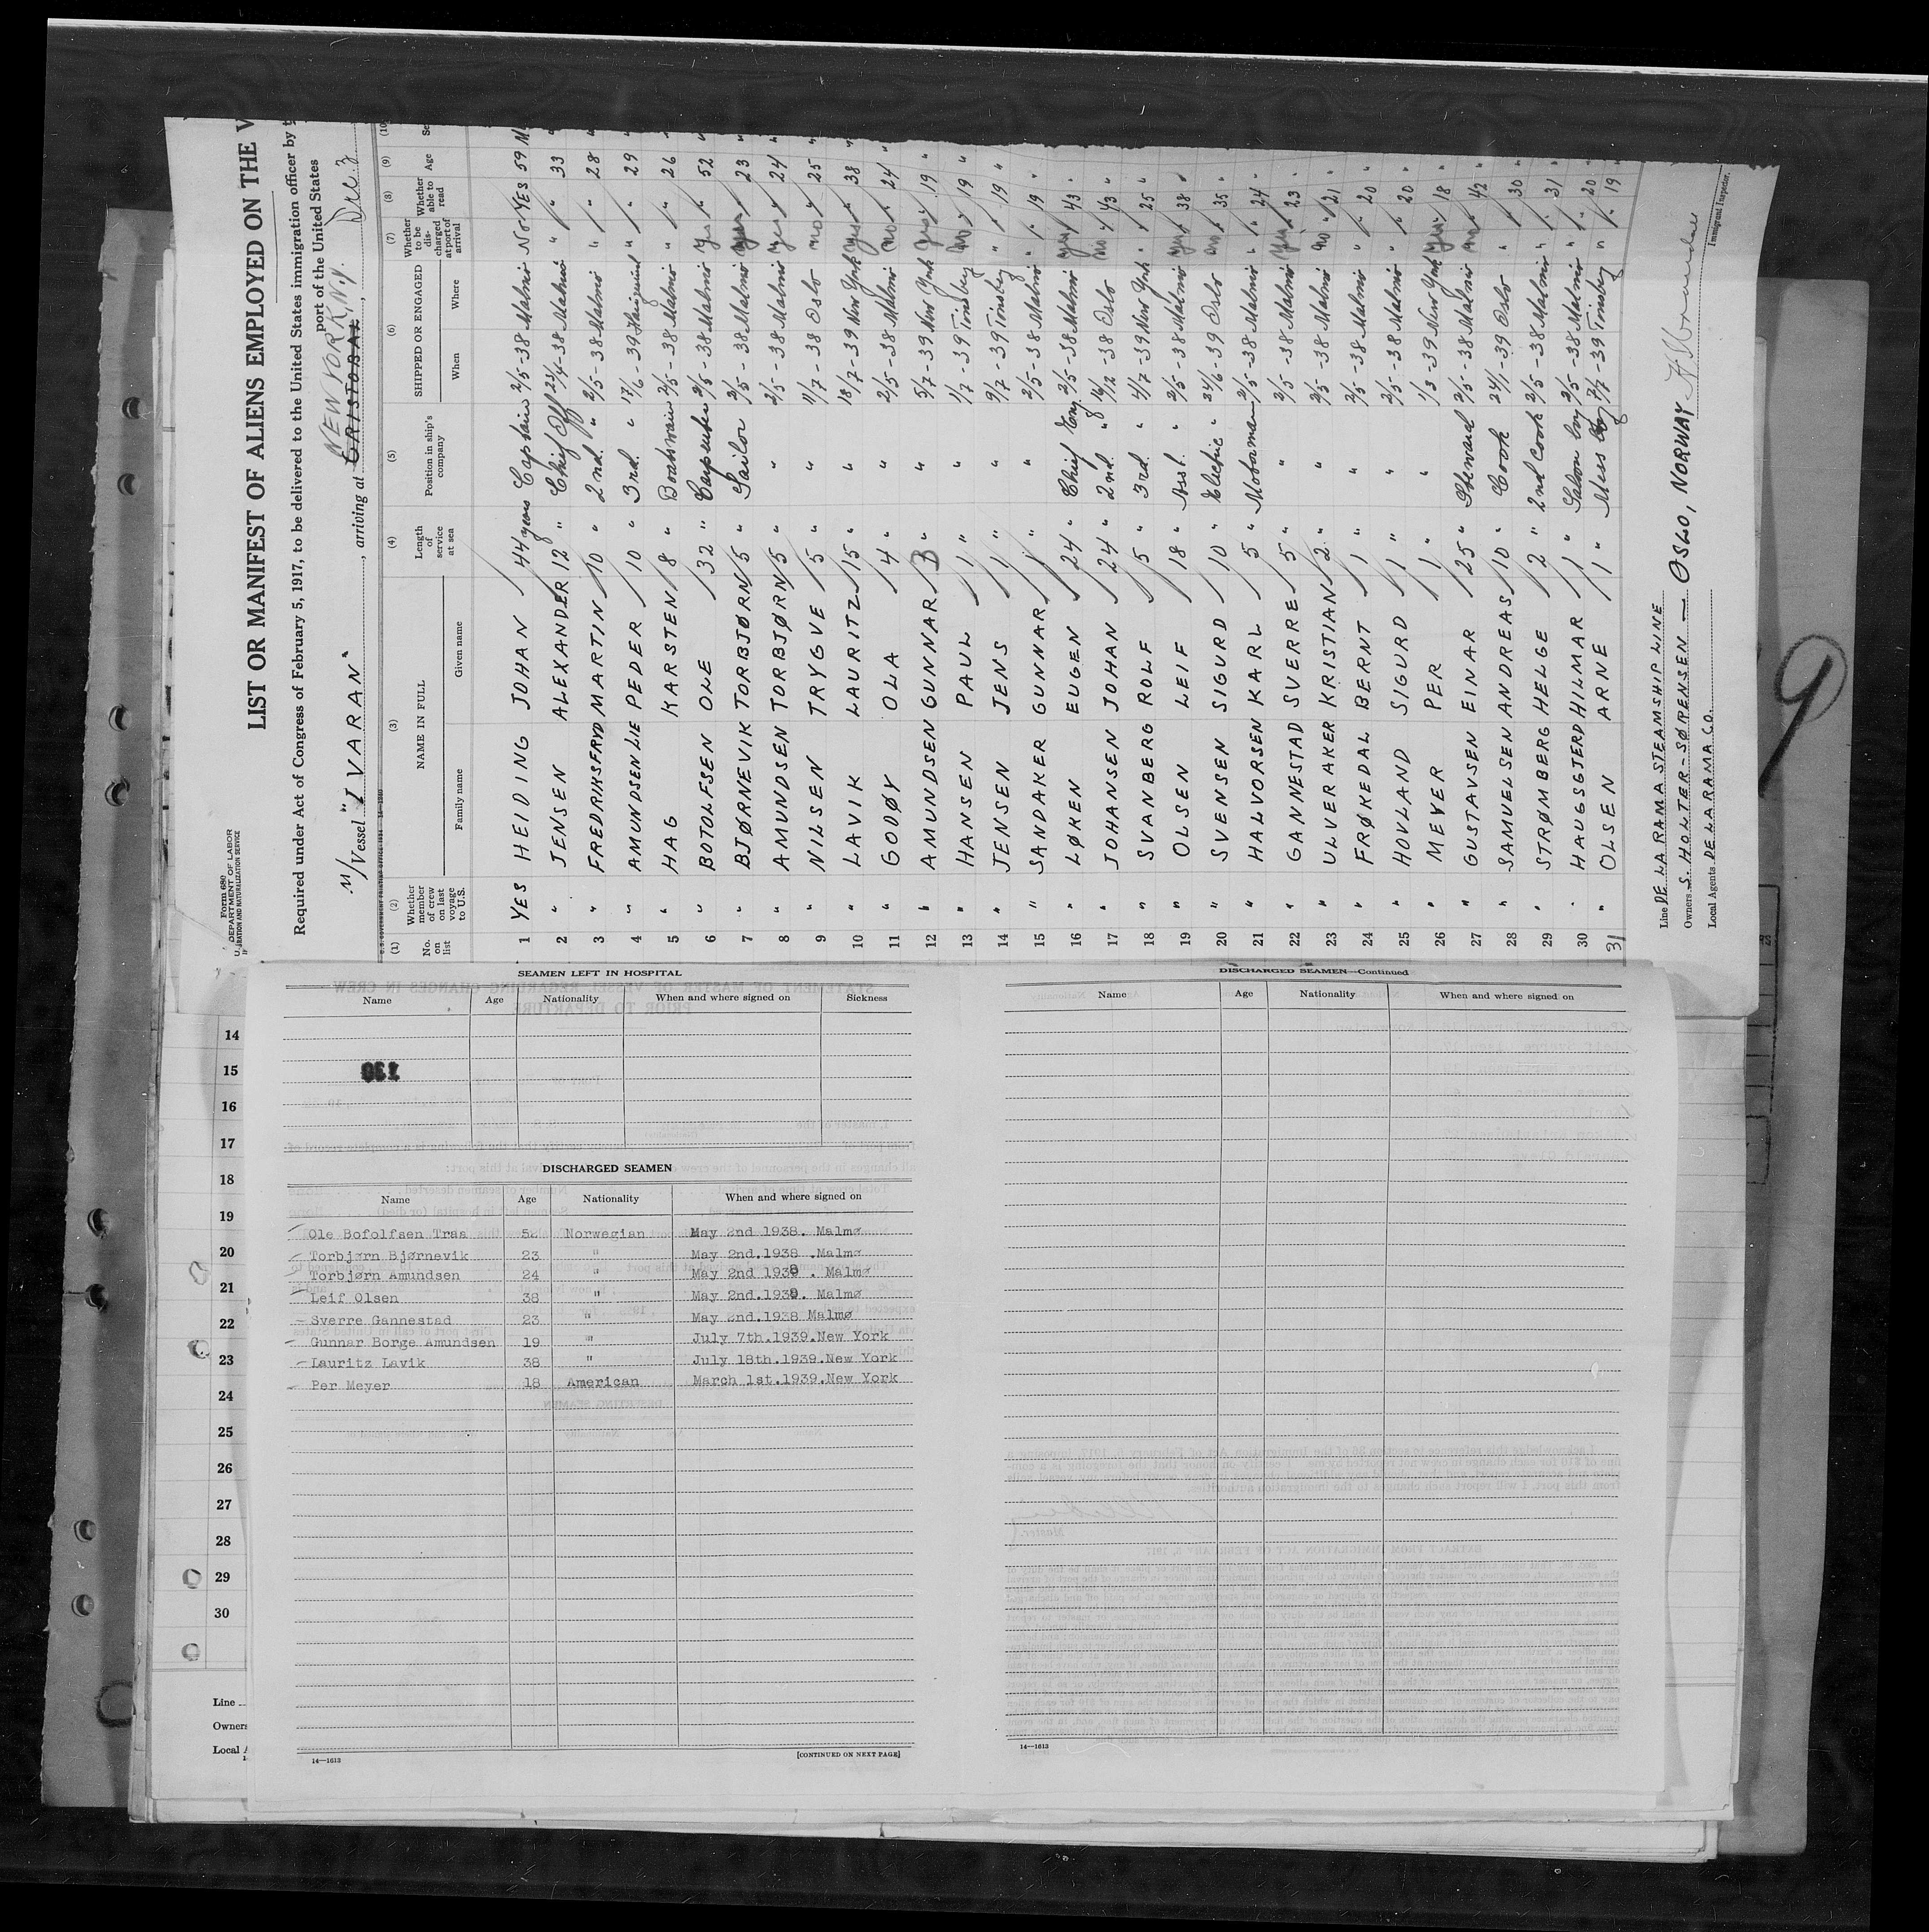 Form 680
U. S. DEPARTMENT OF LABOR
IMMIGRATION AND NATURALIZATION SERVICE
LIST OR MANIFEST OF ALIENS EMPLOYED ON THE V
Required under Act of Congress of February 5, 1917, to be delivered to the United States immigration officer by
port of the United States
NEW YORK N.Y.
M/Vessel "IVARAN", arriving at CRISTOBAL, Dec. 3
(1) (2) (3) (4) (5) (6) (7) (8) (9) (10)
No. on list Whether member of crew on last voyage to U.S. NAME IN FULL Family name Given name Length of service at sea Position in ship's company SHIPPED OR ENGAGED When Where Whether to be discharged at port of arrival Whether able to read Age Se
1 YES HEIDING JOHAN 44 years Captain 2/5-38 Malmö No YES 59 M
2 " JENSEN ALEXANDER 12 " Chief Off 23/4-38 Malmö " " 33 "
3 " FREDRIKSERYD MARTIN 10 " 2nd. " 2/5-38 Malmö " " 28 "
4 " AMUNDSEN LIE PEDER 10 " 3rd. " 17/6-39 " " 29 "
5 " HAG KARSTEN 8 " Boatswain 2/5-38 Malmö " " 26 "
6 " BOTOLFSEN OLE 32 " Carpenter 2/5-38 Malmö yes " 52 "
7 " BJØRNEVIK TORBJØRN 5 " Sailor 2/5-38 Malmö yes " 23 "
8 " AMUNDSEN TORBJØRN 5 " " 2/5-38 Malmö yes " 24 "
9 " NILSEN TRYGVE 5 " " 11/7-38 Oslo no " 25 "
10 " LAVIK LAURITZ 15 " " 18/7-39 New York yes " 38 "
11 " GODØY OLA 4 " " 2/5-38 Malmö no " 24 "
12 " AMUNDSEN GUNNAR 3 " " 5/7-39 New York yes " 19 "
13 " HANSEN PAUL 1 " " 1/7-39 Tönsberg no " 19 "
14 " JENSEN JENS 1 " " 9/7-39 Tönsberg " " 19 "
15 " SANDAKER GUNNAR 1 " " 2/5-38 Malmö " " 19 "
16 " LØKEN EUGEN 24 " Chief Eng. 2/5-38 Malmö yes " 43 "
17 " JOHANSEN JOHAN 24 " 2nd. " 16/12-38 Oslo no " 43 "
18 " SVANBERG ROLF 5 " 3rd. " 4/7-39 New York " " 25 "
19 " OLSEN LEIF 18 " Asst. " 2/5-38 Malmö yes " 38 "
20 " SVENSEN SIGURD 10 " Electric " 24/6-39 Oslo no " 35 "
21 " HALVORSEN KARL 5 " Motorman 2/5-38 Malmö " " 24 "
22 " GANNESTAD SVERRE 5 " " 2/5-38 Malmö yes " 23 "
23 " ULVERAKER KRISTIAN 2 " " 2/5-38 Malmö no " 21 "
24 " FRØKEDAL BERNT 1 " " 2/5-38 Malmö " " 20 "
25 " HOVLAND SIGURD 1 " " 2/5-38 Malmö " " 20 "
26 " MEYER PER 1 " " 1/3-39 New York yes " 18 "
27 " GUSTAVSEN EINAR 25 " Steward 2/5-38 Malmö no " 42 "
28 " SAMUELSEN ANDREAS 10 " Cook 24/7-39 Oslo " " 30 "
29 " STRØMBERG HELGE 2 " 2nd Cook 2/5-38 Malmö " " 31 "
30 " HAUGSGJERD HILMAR 1 " Saloon boy 2/5-38 Malmö " " 20 "
31 " OLSEN ARNE 1 " Mess boy 2/7-39 Tönsberg " " 19 "
Line DE LA RAMA STEAMSHIP LINE
Owners S. HOLTER-SØRENSEN — OSLO, NORWAY
Local Agents DE LA RAMA CO.
Immigrant Inspector.
9
SEAMEN LEFT IN HOSPITAL
Name Age Nationality When and where signed on Sickness
DISCHARGED SEAMEN
Name Age Nationality When and where signed on
Ole Bofolfsen Traa 52 Norwegian May 2nd 1938. Malmø
Torbjørn Bjørnevik 23 " May 2nd.1938 .Malmø
Torbjørn Amundsen 24 " May 2nd 1938 . Malmø
Leif Olsen 38 " May 2nd.1938. Malmø
Sverre Gannestad 23 " May 2nd.1938 Malmø
Gunnar Borge Amundsen 19 " July 7th.1939.New York
Lauritz Lavik 38 " July 18th.1939.New York
Per Meyer 18 American March 1st.1939.New York
14—1613
[CONTINUED ON NEXT PAGE]
DISCHARGED SEAMEN—Continued
Name Age Nationality When and where signed on
14—1613
14
15
16
17
18
19
20
21
22
23
24
25
26
27
28
29
30
Line
Owners
Local A